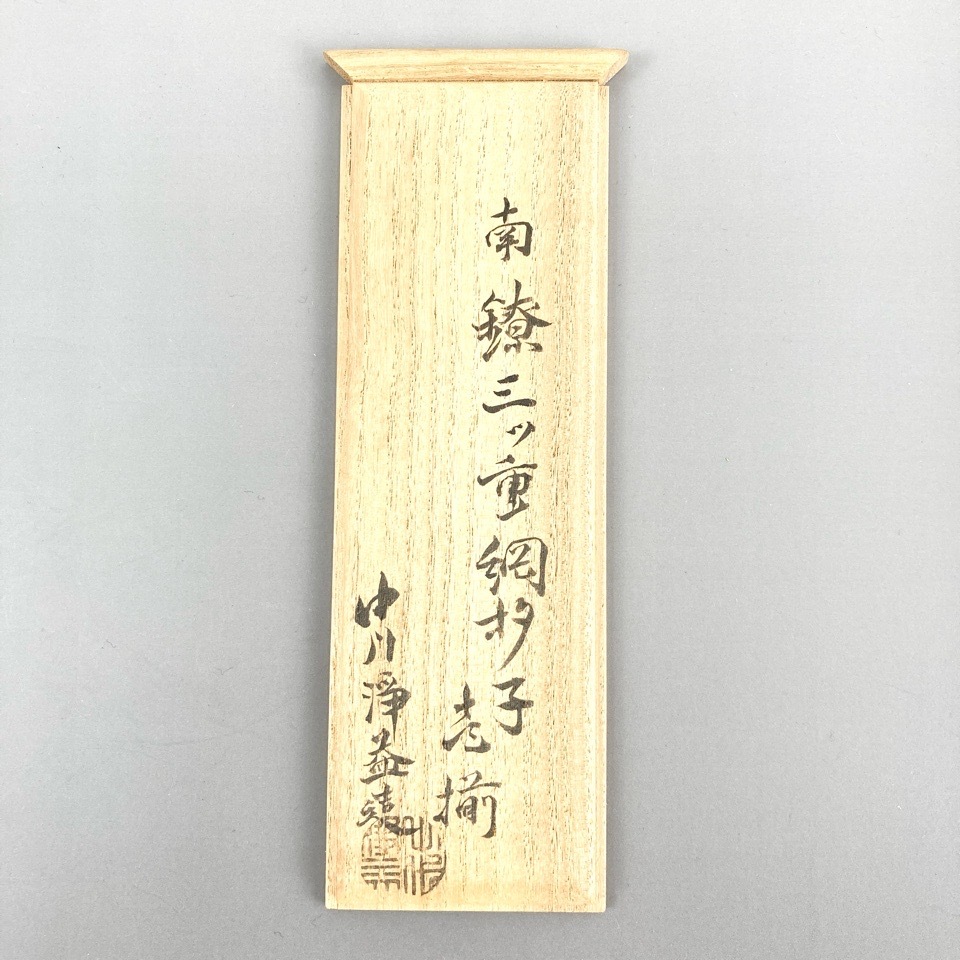 南鐐三ッ重綱杓子
壱揃
中川淨益造